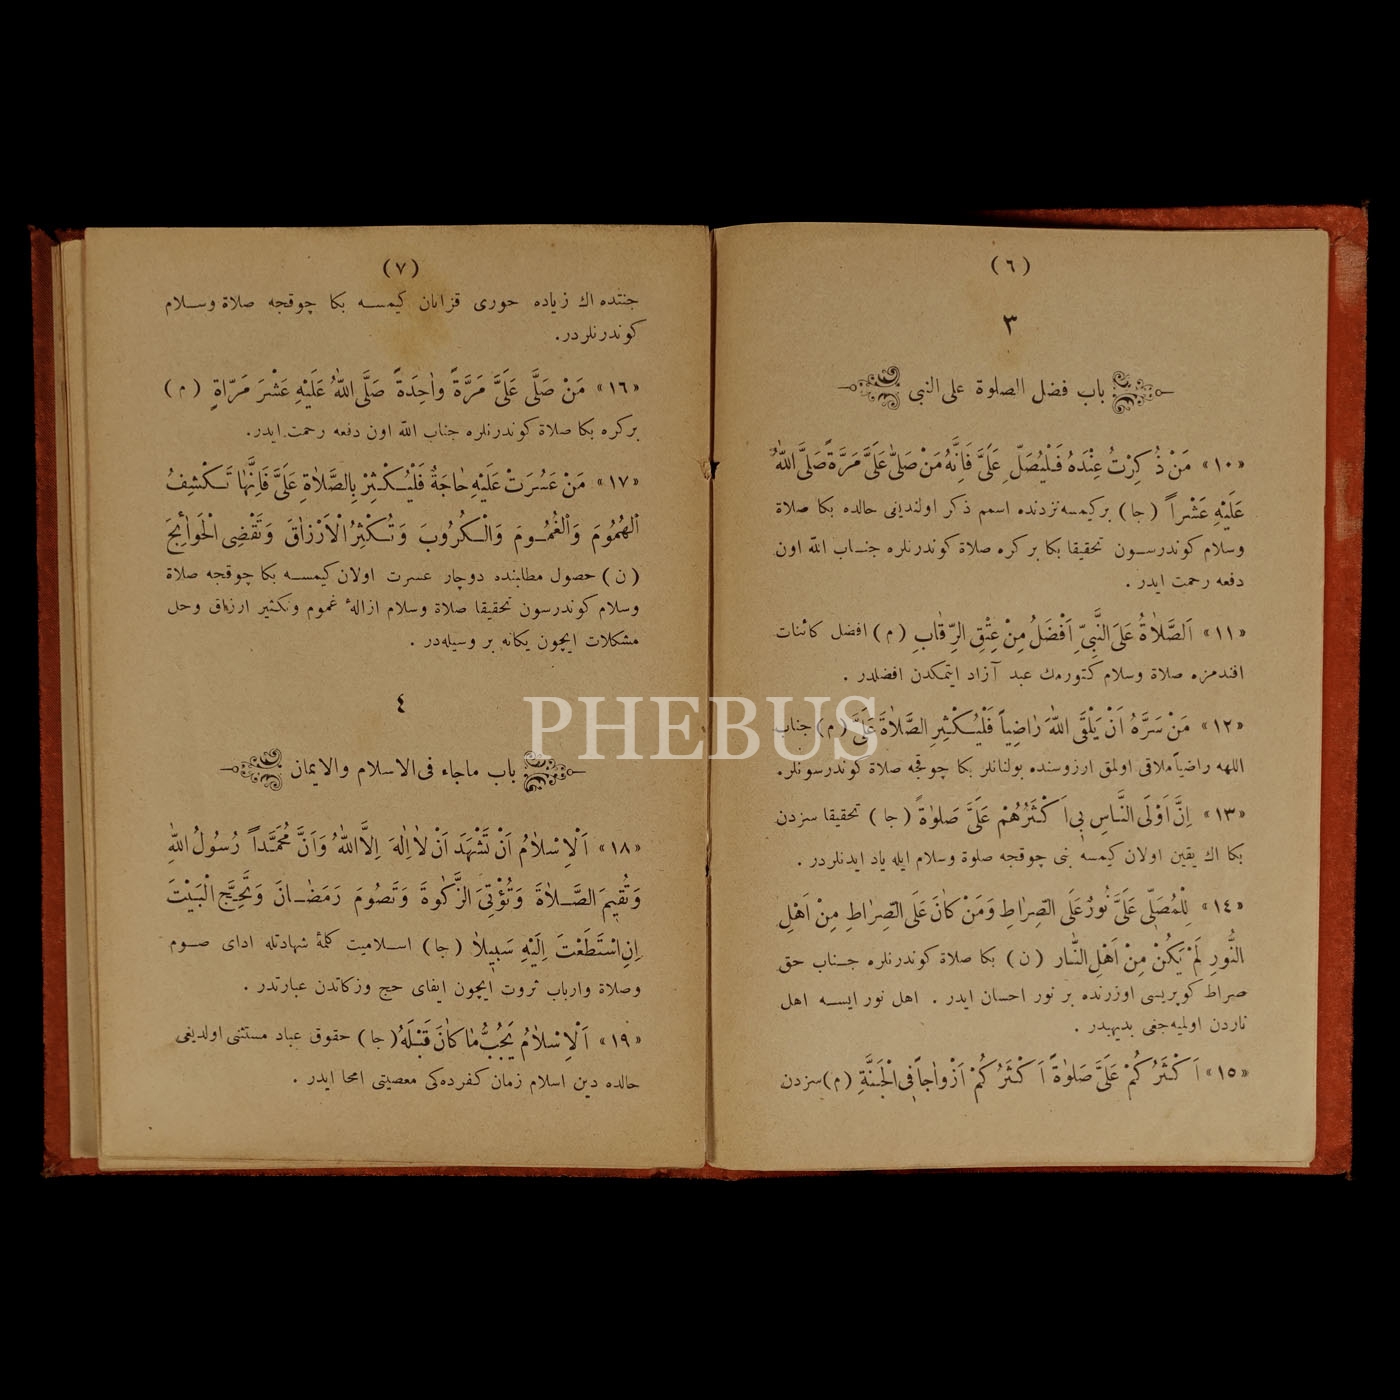 (٦)
٣
باب فضل الصلوة على النبى
«١٠» مَنْ ذُكِرْتُ عِنْدَهُ فَلْيُصَلِّ عَلَىَّ فَاِنَّهُ مَنْ صَلَّى عَلَىَّ مَرَّةً صَلَّى اللّٰهُ
عَلَيْهِ عَشْراً (جا) بركيمسه نزدنده اسمم ذكر اولنديغى حالده بكا صلاة
وسلام كوندرسون تحقيقا بكا بر كره صلاة كوندرنلره جناب الله اون
دفعه رحمت ايدر .
«١١» اَلصَّلاٰةُ عَلَى النَّبِىِّ اَفْضَلُ مِنْ عِتْقِ الرِّقٰابِ (م) افضل كائنات
افندمزه صلاة وسلام كتورمك عبد آزاد ايتمكدن افضلدر .
«١٢» مَنْ سَرَّهُ اَنْ يَلْقَى اللّٰهَ رٰاضِياً فَلْيُكْثِرِ الصَّلاٰةَ عَلَىَّ (م) جناب
اللهه راضياً ملاقى اولمق ارزوسنده بولنانلر بكا چوقجه صلاة كوندرسونلر.
«١٣» اِنَّ اَوْلَى النَّاسِ بِى اَكْثَرُهُمْ عَلَىَّ صَلوٰةً (جا) تحقيقا سزدن
بكا اك يقين اولان كيمسه بنى چوقجه صلوة وسلام ايله ياد ايدنلردر .
«١٤» لِلْمُصَلِّى عَلَىَّ نُورٌ عَلَى الصِّرٰاطِ وَمَنْ كٰانَ عَلَى الصِّرٰاطِ مِنْ اَهْلِ
النُّورِ لَمْ يَكُنْ مِنْ اَهْلِ النَّار (ن) بكا صلاة كوندرنلره جناب حق
صراط كوپريسى اوزرنده بر نور احسان ايدر . اهل نور ايسه اهل
ناردن اولميه جغى بديهيدر .
«١٥» اَكْثَرُكُمْ عَلَىَّ صَلوٰةً اَكْثَرُكُمْ اَزْوٰاجاً فِى الْجَنَّةِ (م) سزدن
(٧)
جنتده اك زياده حورى قزانان كيمسه بكا چوقجه صلاة وسلام
كوندرنلردر.
«١٦» مَنْ صَلَّى عَلَىَّ مَرَّةً وٰاحِدَةً صَلَّى اللّٰهُ عَلَيْهِ عَشْرَ مَرّاةٍ (م)
بركره بكا صلاة كوندرنلره جناب الله اون دفعه رحمت ايدر.
«١٧» مَنْ عَسُرَتْ عَلَيْهِ حٰاجَةٌ فَلْيُكْثِرْ بِالصَّلاٰةِ عَلَىَّ فَاِنَّهٰا تَكْشِفُ
اْلهُمُومَ وَاْلغُمُومَ وَالْكُرُوبَ وَتُكْثِرُ الْاَرْزٰاقَ وَتَقْضِى الْحَوٰائِجَ
(ن) حصول مطلبنده دوچار عسرت اولان كيمسه بكا چوقجه صلاة
وسلام كوندرسون تحقيقا صلاة وسلام ازالهٔ غموم وتكثير ارزاق وحل
مشكلات ايچون يكانه بر وسيله در .
٤
باب ماجاء فى الاسلام والايمان
«١٨» اَلْاِسْلاٰمُ اَنْ تَشْهَدَ اَنْ لاٰ اِلٰهَ اِلاَّ اللّٰهُ وَاَنَّ مُحَمَّداً رَسُولُ اللّٰهِ
وَتُقِيمَ الصَّلاٰةَ وَتُؤْتِىَ الزَّكٰوةَ وَتَصُومَ رَمَضٰانَ وَتَحُجَّ الْبَيْتَ
اِنِ اسْتَطَعْتَ اِلَيْهِ سَبِيلاٰ (جا) اسلاميت كلمهٔ شهادتله اداى صوم
وصلاة وارباب ثروت ايچون ايفاى حج وزكاتدن عبارتدر .
«١٩» اَلْاِسْلاٰمُ يَجُبُّ مٰا كٰانَ قَبْلَهُ (جا) حقوق عباد مستثنى اولديغى
حالده دين اسلام زمان كفرده كى معصيتى امحا ايدر .
PHEBUS